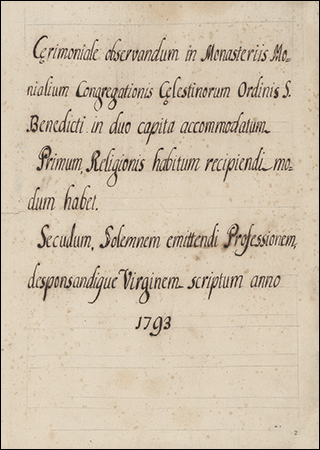 Cęrimoniale observandum in Monasteriis Mo=
nialium Congregationis Cęlestinorum Ordinis S.
Benedicti in duo capita accommodatum
Primum, Religionis habitum recipiendi mo=
dum habet.
Secudum, Solemnem emittendi Professionem,
desponsandique Virginem scriptum anno
1793
2